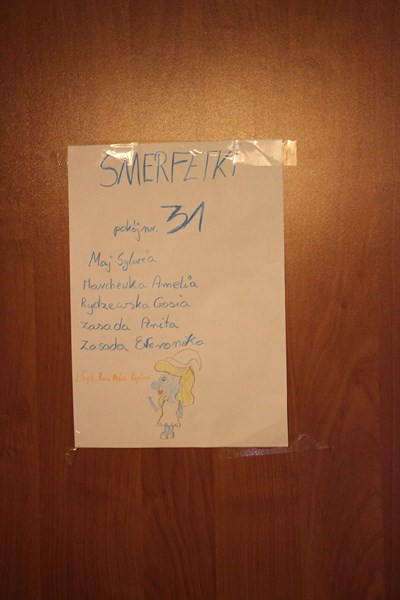 SMERFETKI
pokój nr. 31
Maj Sylwia
Marchewka Amelia
Rydzewska Gosia
Zasada Anita
Zasada Weronika